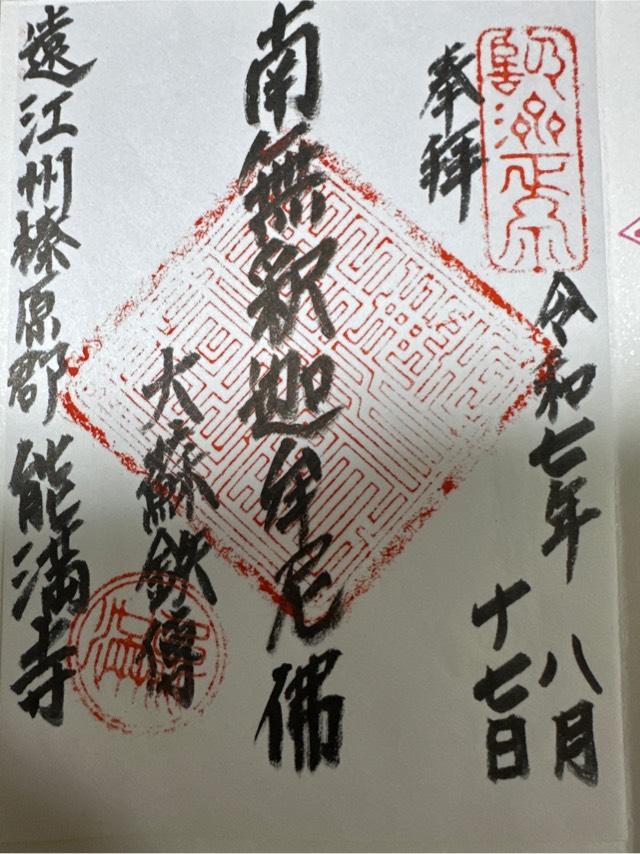 奉拝
令和七年
八月
十七日
南無釈迦牟尼佛
大蘇鉄傳
遠江州榛原郡
能満寺